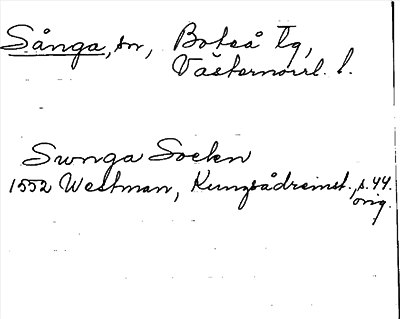 Sånga, sn, Boteå tg,
Västernorrl. l.
Sunga Socken
1552 Westman, Kungsådreinst., s. 44.
orig.